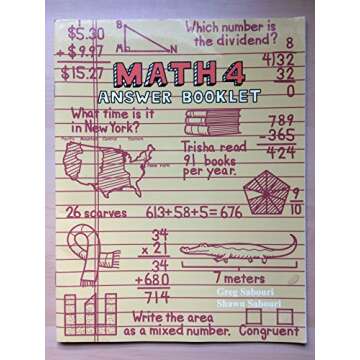 1
$5.30
+ $9.97
$15.27
B
M
N
Which number is
the dividend?
8
4)32
32
0
MATH 4
ANSWER BOOKLET
What time is it
in New York?
Pacific Mountain Central Eastern
New York
Trisha read
91 books
per year.
789
-365
424
9
10
26 scarves
613+58+5=676
34
x 21
34
+680
714
7 meters
Greg Sabouri
Shawn Sabouri
Write the area
as a mixed number.
Congruent